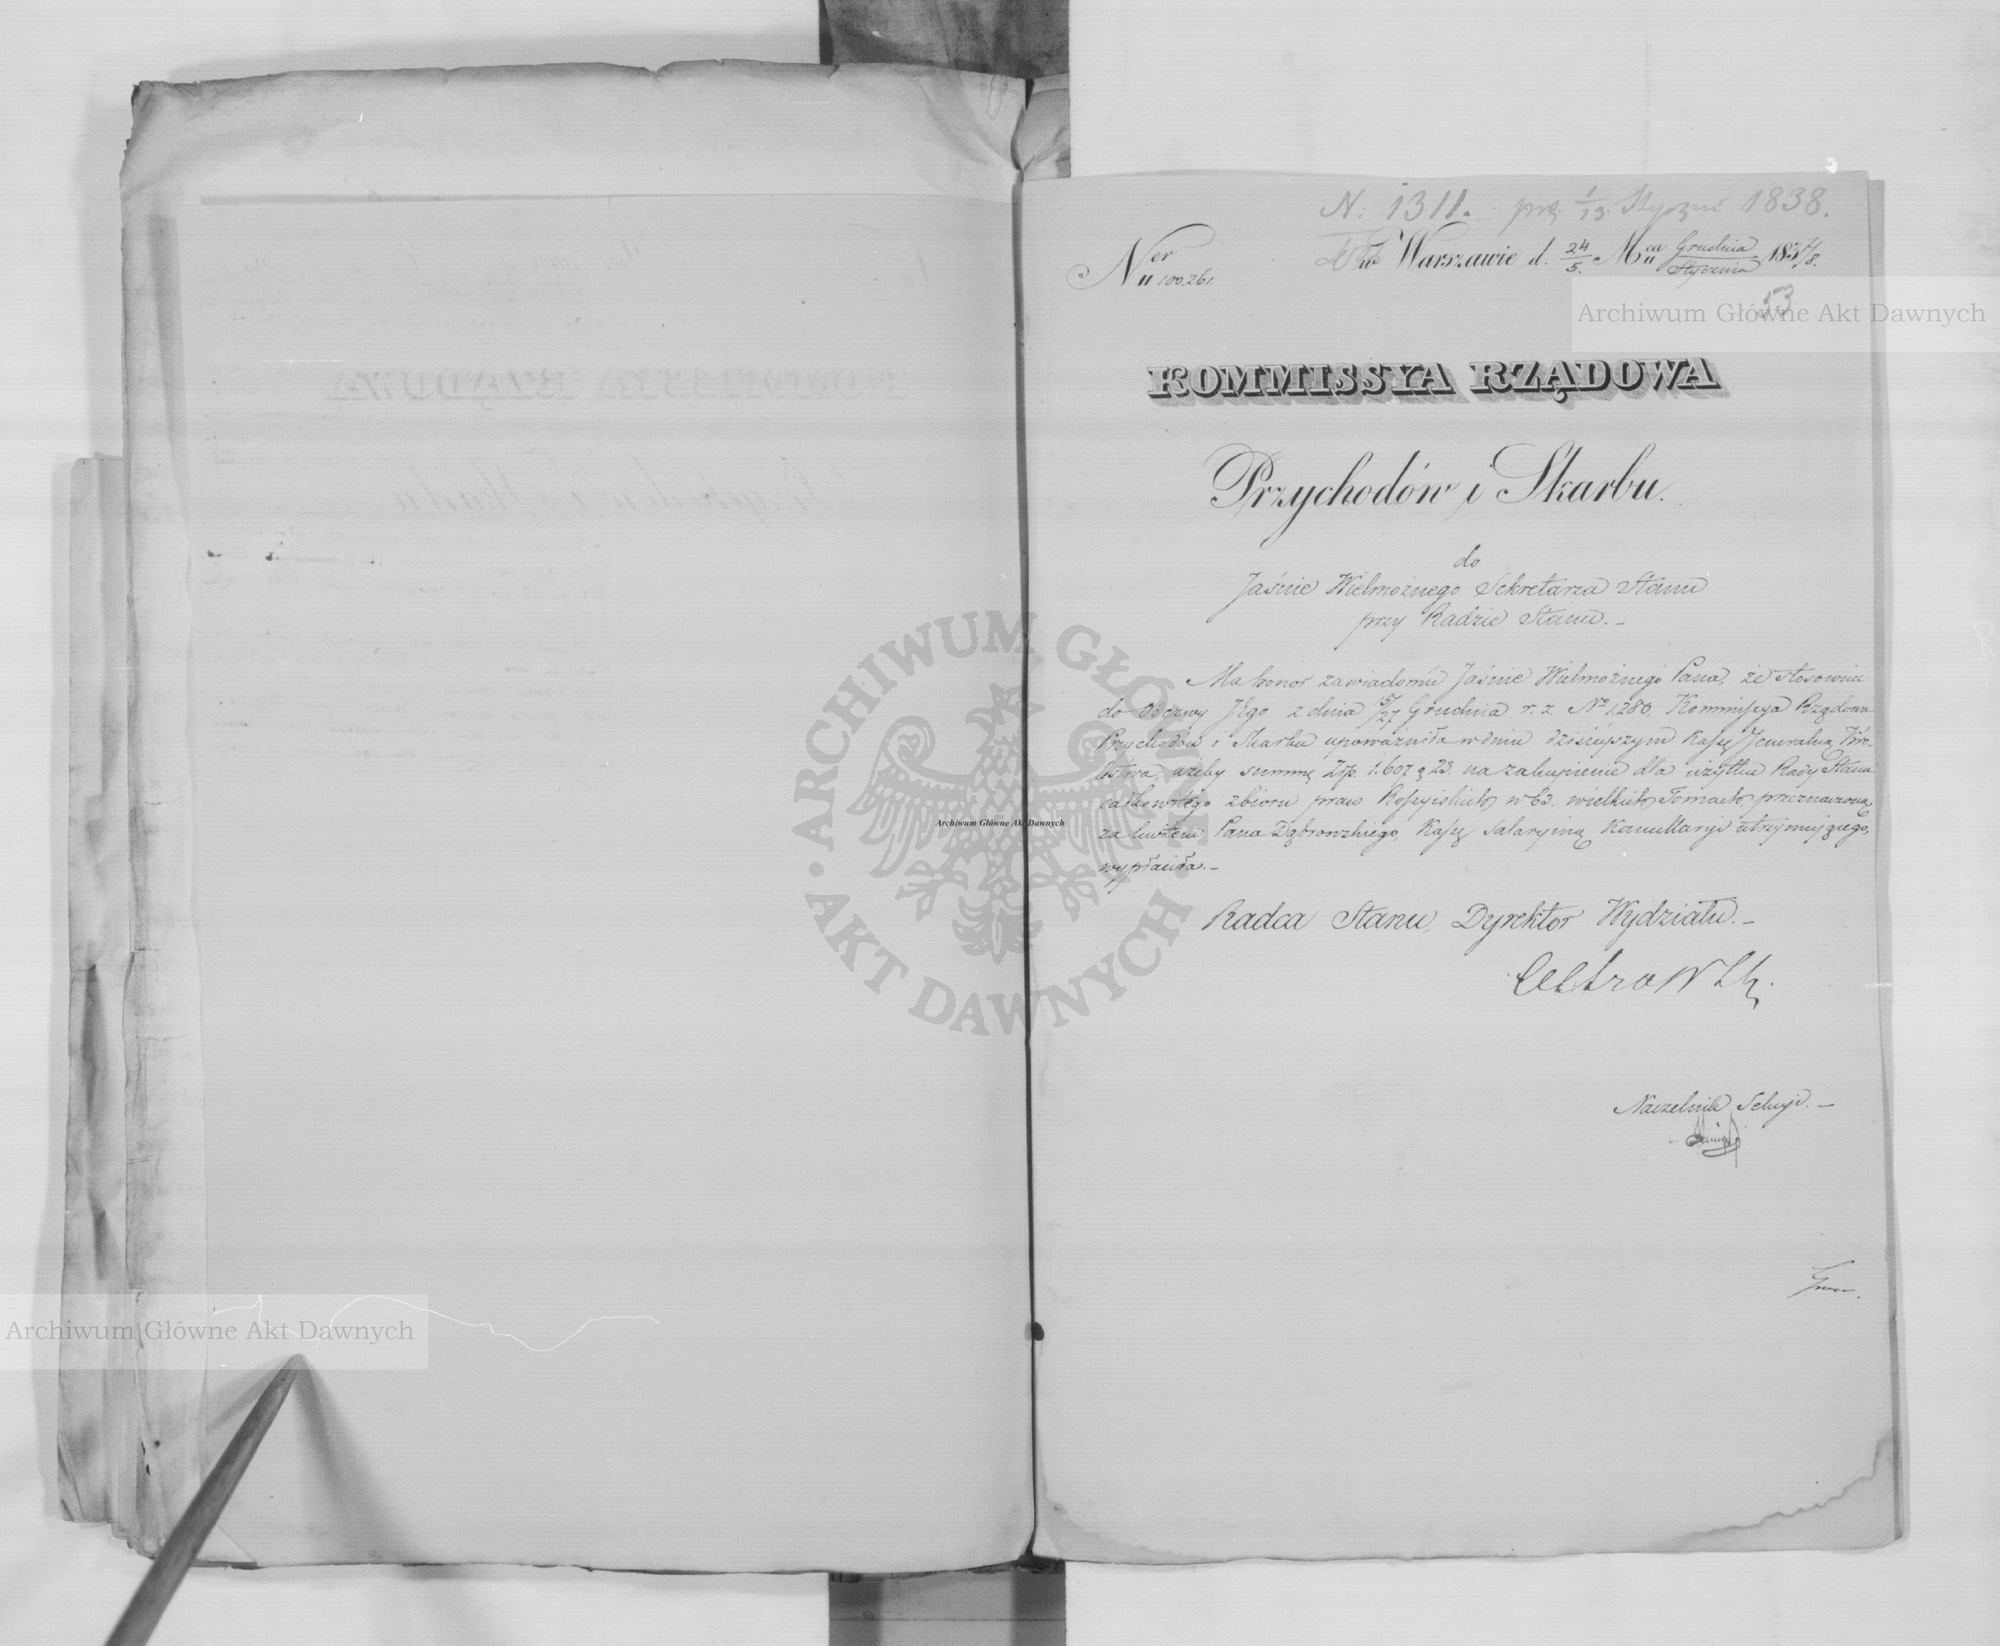 N: 1311. prz. 1/13. Styczni 1838.
Ner 100.261.
w Warszawie d. 24/5. Mca Grudnia/Stycznia 1837/8.
53
Archiwum Główne Akt Dawnych
KOMMISSYA RZĄDOWA
Przychodów i Skarbu.
do
Jaśnie Wielmożnego Sekretarza Stanu
przy Radzie Stanu.-
Ma honor zawiadomić Jaśnie Wielmożnego Pana, że stosownie
do odezwy Jego z dnia 15/27 Grudnia r. z. No 1280. Kommissya Rządowa
Przychodów i Skarbu upoważniła w dniu dzisiejszym Kassę Jeneralną Kró-
lestwa, ażeby summę Złp. 1.607 g 23. na zakupienie dla użytku Rady Stanu
całkowitego zbioru praw Rossyiskich w 63. wielkich Tomach przeznaczoną
za kwitem Pana Dąbrowskiego, Kassę Salaryiną Kancellaryi utrzymującego,
wypłaciła.-
Radca Stanu, Dyrektor Wydziału.-
Naczelnik Sekcyi.-
ARCHIWUM GŁÓWNE AKT DAWNYCH
Archiwum Główne Akt Dawnych
Archiwum Główne Akt Dawnych